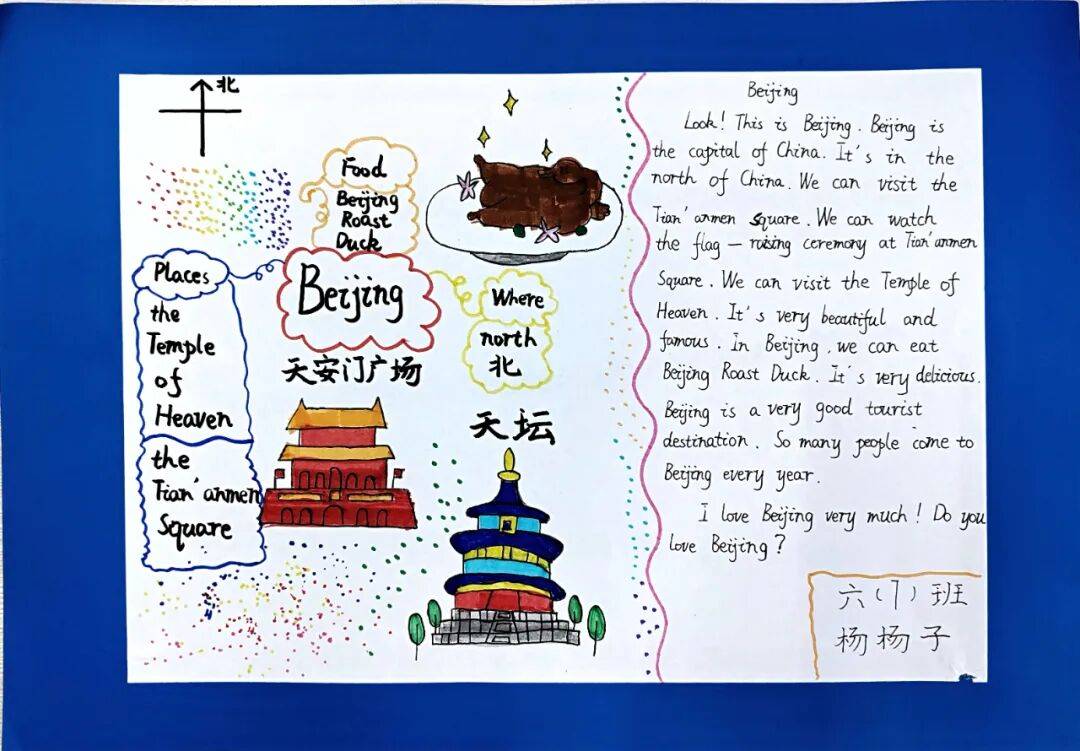 北
Food
Beijing
Roast
Duck
Places
the
Temple
of
Heaven
the
Tian'anmen
Square
Beijing
Where
north
北
天安门广场
天坛
Beijing
Look! This is Beijing. Beijing is
the capital of China. It's in the
north of China. We can visit the
Tian'anmen square. We can watch
the flag-raising ceremony at Tian'anmen
Square. We can visit the Temple of
Heaven. It's very beautiful and
famous. In Beijing, we can eat
Beijing Roast Duck. It's very delicious.
Beijing is a very good tourist
destination. So many people come to
Beijing every year.
I love Beijing very much! Do you
love Beijing?
六(1)班
杨杨子